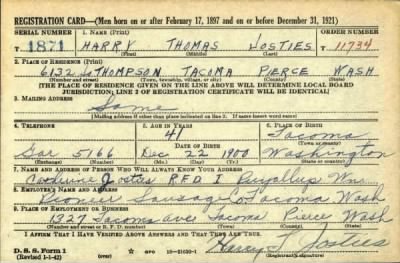 REGISTRATION CARD—(Men born on or after February 17, 1897 and on or before December 31, 1921)
SERIAL NUMBER 1. NAME (Print) ORDER NUMBER
T 1871 HARRY THOMAS JOSTIES T 11734
(First) (Middle) (Last)
2. PLACE OF RESIDENCE (Print)
6132 So THOMPSON TACOMA PIERCE WASH
(Number and street) (Town, township, village, or city) (County) (State)
[THE PLACE OF RESIDENCE GIVEN ON THE LINE ABOVE WILL DETERMINE LOCAL BOARD
JURISDICTION; LINE 2 OF REGISTRATION CERTIFICATE WILL BE IDENTICAL]
3. MAILING ADDRESS
Same
[Mailing address if other than place indicated on line 2. If same insert word same]
4. TELEPHONE 5. AGE IN YEARS 6. PLACE OF BIRTH
41 Tacoma
DATE OF BIRTH (Town or county)
Gar 5166 Dec 22 1900 Washington
(Exchange) (Number) (Mo.) (Day) (Yr.) (State or country)
7. NAME AND ADDRESS OF PERSON WHO WILL ALWAYS KNOW YOUR ADDRESS
Catherine Josties R.F.D. 1 Puyallup Wn.
8. EMPLOYER'S NAME AND ADDRESS
Pioneer Sausage Co Tacoma Wash
9. PLACE OF EMPLOYMENT OR BUSINESS
1327 Tacoma ave Tacoma Pierce Wash
(Number and street or R. F. D. number) (Town) (County) (State)
I AFFIRM THAT I HAVE VERIFIED ABOVE ANSWERS AND THAT THEY ARE TRUE.
D. S. S. Form 1
(Revised 1-1-42) (over) Harry T. Josties